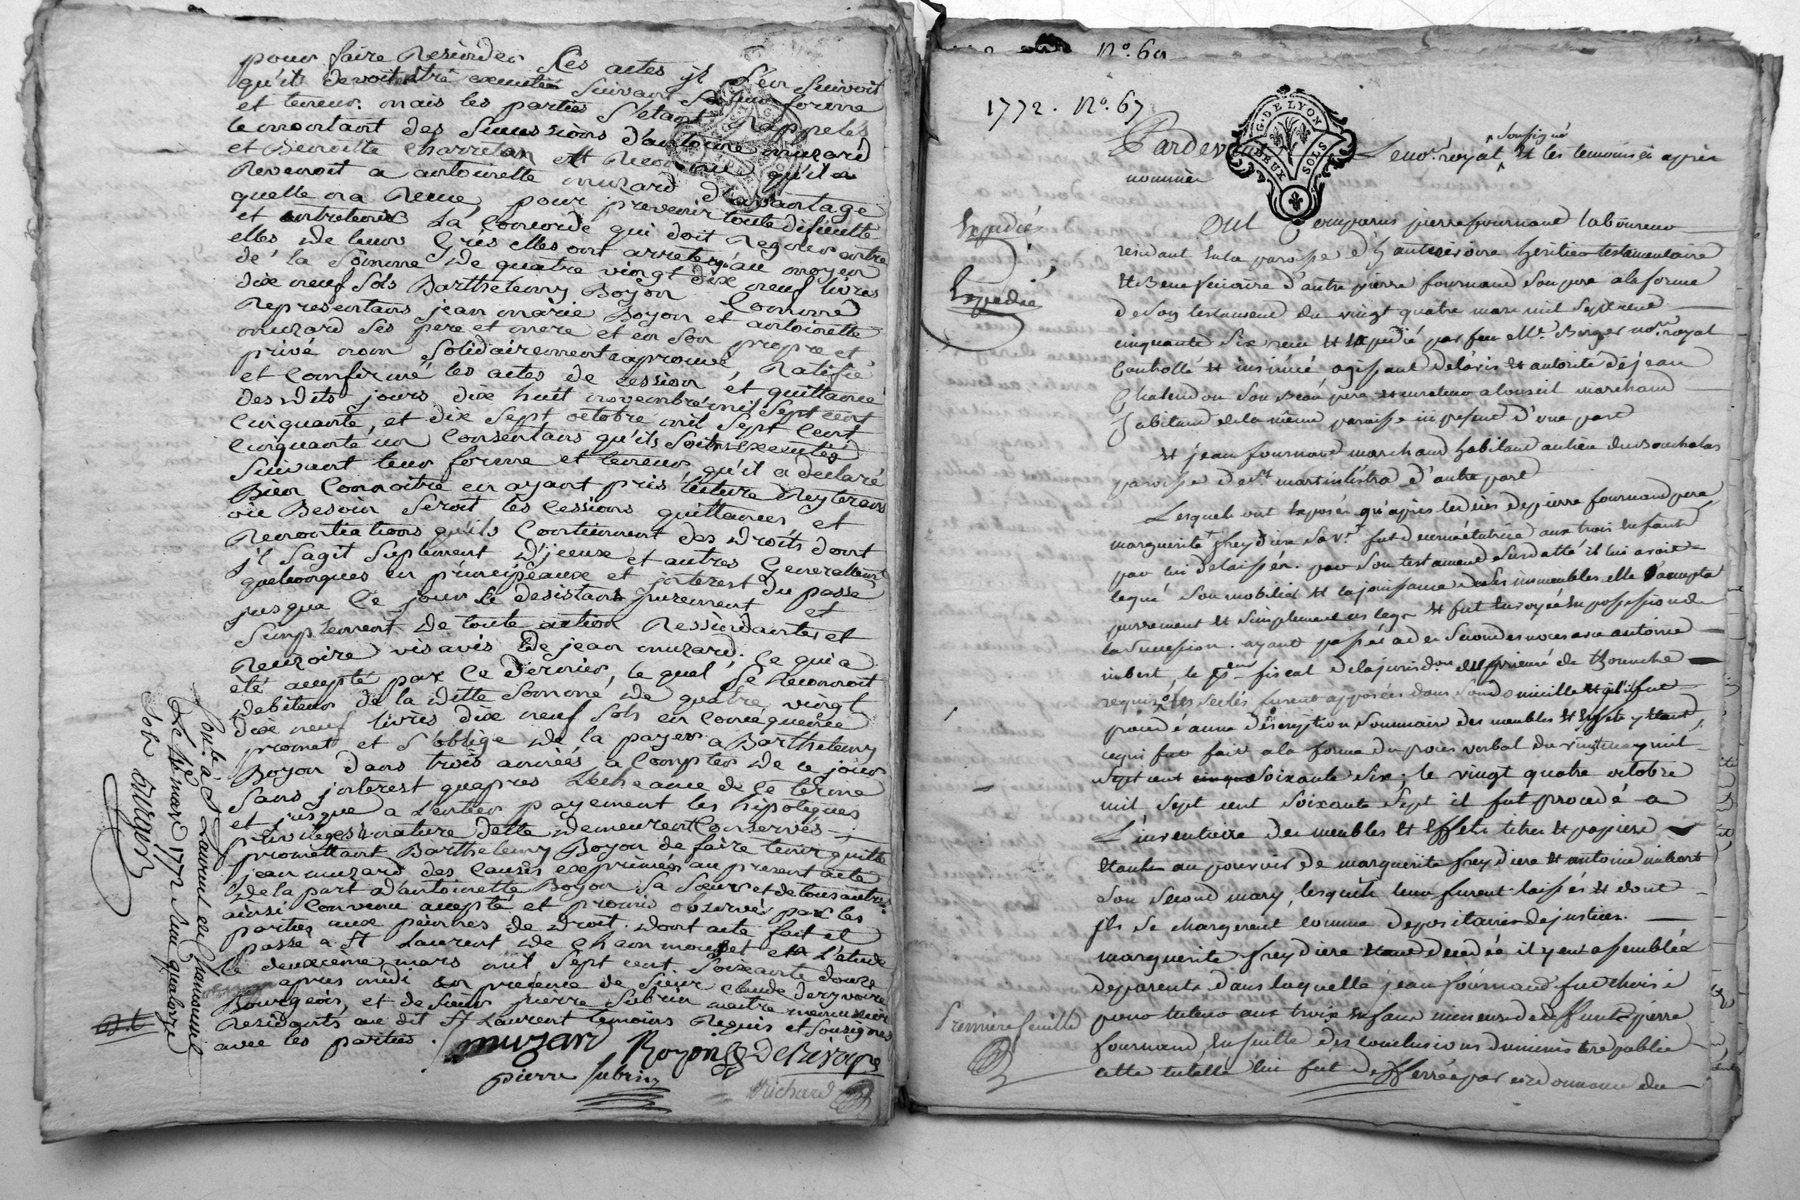 pour faire Resinder Les actes jl s'en suivoit
qu'il devoit être executés suivant sa forme
et teneur. mais les parties s'etant rappelés
le montant des successions d'antoine muzard
et Benoitte Charretan et Reconnu qu'il
Revenoit a antoinette muzard d'avantage
quelle n'a Reçue, pour prevenir toute dificulté
et entretenir La Concorde qui doit Regner entre
elles de leurs Grés elles ont arreté qu'au moyen
de la Somme de quatre vingt dix neuf livres
dix neuf sols Barthelemy Boyon Comme
Representans jean marie Boyon et antoinette
muzard ses pere et mere et en son propre et
privé nom solidairement approuvé, Ratifié
et Confirmé les actes de cession et quittance
desdits jours dix huit novembre mil sept cent
Cinquante, et dix sept octobre mil sept Cent
Cinquante un Consentans qu'ils soient executés
suivant leur forme et teneur, qu'il a declaré
Bien Connoitre en ayant pris lecture Reyterans
où Besoin Seroit les Cessions quittances et
Renontiations qu'ils Contiennent des droits dont
j'l s'agit suplement d'jceux et autres Generallement
quelconques en principeaux et jnterest du passé
jusqua Ce jour se desistans purement et
simplement de toute action Ressindantes et
Renzoire vis avis de jean muzard. Ce qui a
été accepté par Ce dernier, le quel se Reconnoit
debiteur de la ditte somme de quatre vingt
dix neuf livres dix neuf sols en Consequence
promet et s'oblige de la payer a Barthelemy
Boyon dans trois années a Compter de ce jour
sans jnterest qu'apres L'echeance de ce terme
et jusque a L'entier payement les hipoteques
privileges nature dette demeurent Conservés
promettant Barthelemy Boyon de faire tenir quitte
jean muzard des Causes exprimés au present acte
de la part d'antoinette Boyon sa sœur et de tous autres
ainsi Convenu accepté et promis observer par les
parties aux peines de droit. dont acte fait et
passé a St Laurent de Chamousset en L'étude
le deuxieme mars mil sept cent soixante douze
apres midi en presence de sieur Claude deryvoire
Bourgeois, et de sieur pierre subrin maitre menuisier
Residants au dit St Laurent temoins Requis et sousignés
avec les parties.
muzard Boyon
pierre subrin
Richard
Conté à St Laurent de Chamousset
Le mars 1772
N°. 60
1772. N°. 67
G. DE LYON
DEUX SOLS
Pardevant Le nore. royal sousigné et les temoins ci après
nommés
Expedié
Expedié
Out Comparus pierre fournand laboureur
residant en la paroisse d'hauterivoire heritier testamentaire
et Beneficiaire d'autre pierre fournand son pere a la forme
de son testament du vingt quatre mars mil sept cent
cinquante six reçu et expedié par feu Me. Berger nore. royal
Controllé et insinué agissant de l'avis et autorité de jean
Chalendon son Beau pere et curateur a conseil marchand
habitant de la même paroisse ici present d'une part
et jean fournand marchand habitant au lieu du
paroisse de st. martin lestra d'autre part
Lesquels ont exposés qu'après le deces de pierre fournand pere
marguerite freydiere sa ve. fut nommée tutrice aux trois enfants
par lui delaissés. par son testament susdatté il lui avoit
legué son mobilier et la jouissance de ses immeubles elle accepta
purement et simplement ces legs et fut envoyée en possession de
la succession. ayant passé a de secondes noces avec antoine
imbert, le pr. fiscal de la jurisdon. du prieuré de
requis les scelés furent apposées dans son domicille et il fut
procedé a une description sommaire des meubles et effets y etant,
ce qui fut fait a la forme du procès verbal du vingt may mil
sept cent soixante six; le vingt quatre octobre
mil sept cent soixante sept il fut procedé a
L'inventaire des meubles et effets titres et papiers
etants au pouvoir de marguerite freydiere et antoine imbert
son second mary, lesquels leur furent laissés et dont
ils se chargerent comme depositaires de justice.
marguerite freydiere etant decedée il y eut assemblée
de parents dans laquelle jean fournand fut choisi
pour tuteur aux trois enfans mineurs de deffunt pierre
fournand, en suitte des conclusions du ministere public
cette tutelle lui fut defferrée par ordonnance du
Premiere feuille